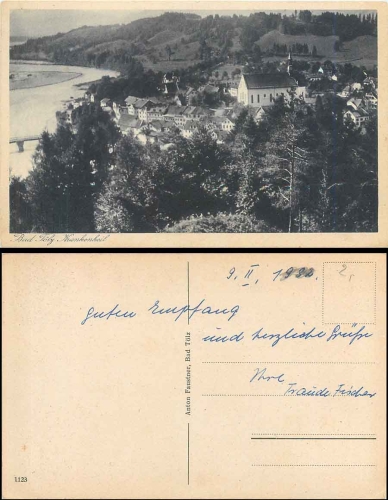 Bad Tölz Krankenheil
9. II. 1932.
2,
guten Empfang
und herzliche Grüße
Ihre
Traude Fischer
Anton Fanstner, Bad Tölz
1123